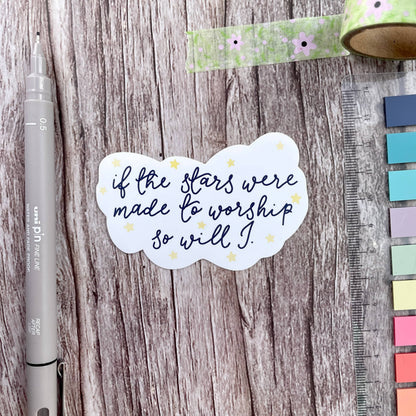 if the stars were
made to worship
so will I.
0.5
uni pin FINE LINE